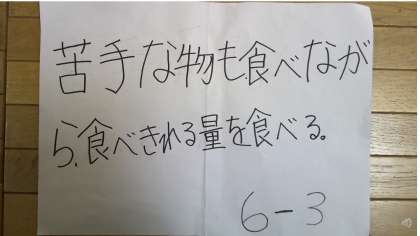 苦手な物も食べなが
ら、食べきれる量を食べる。
6-3